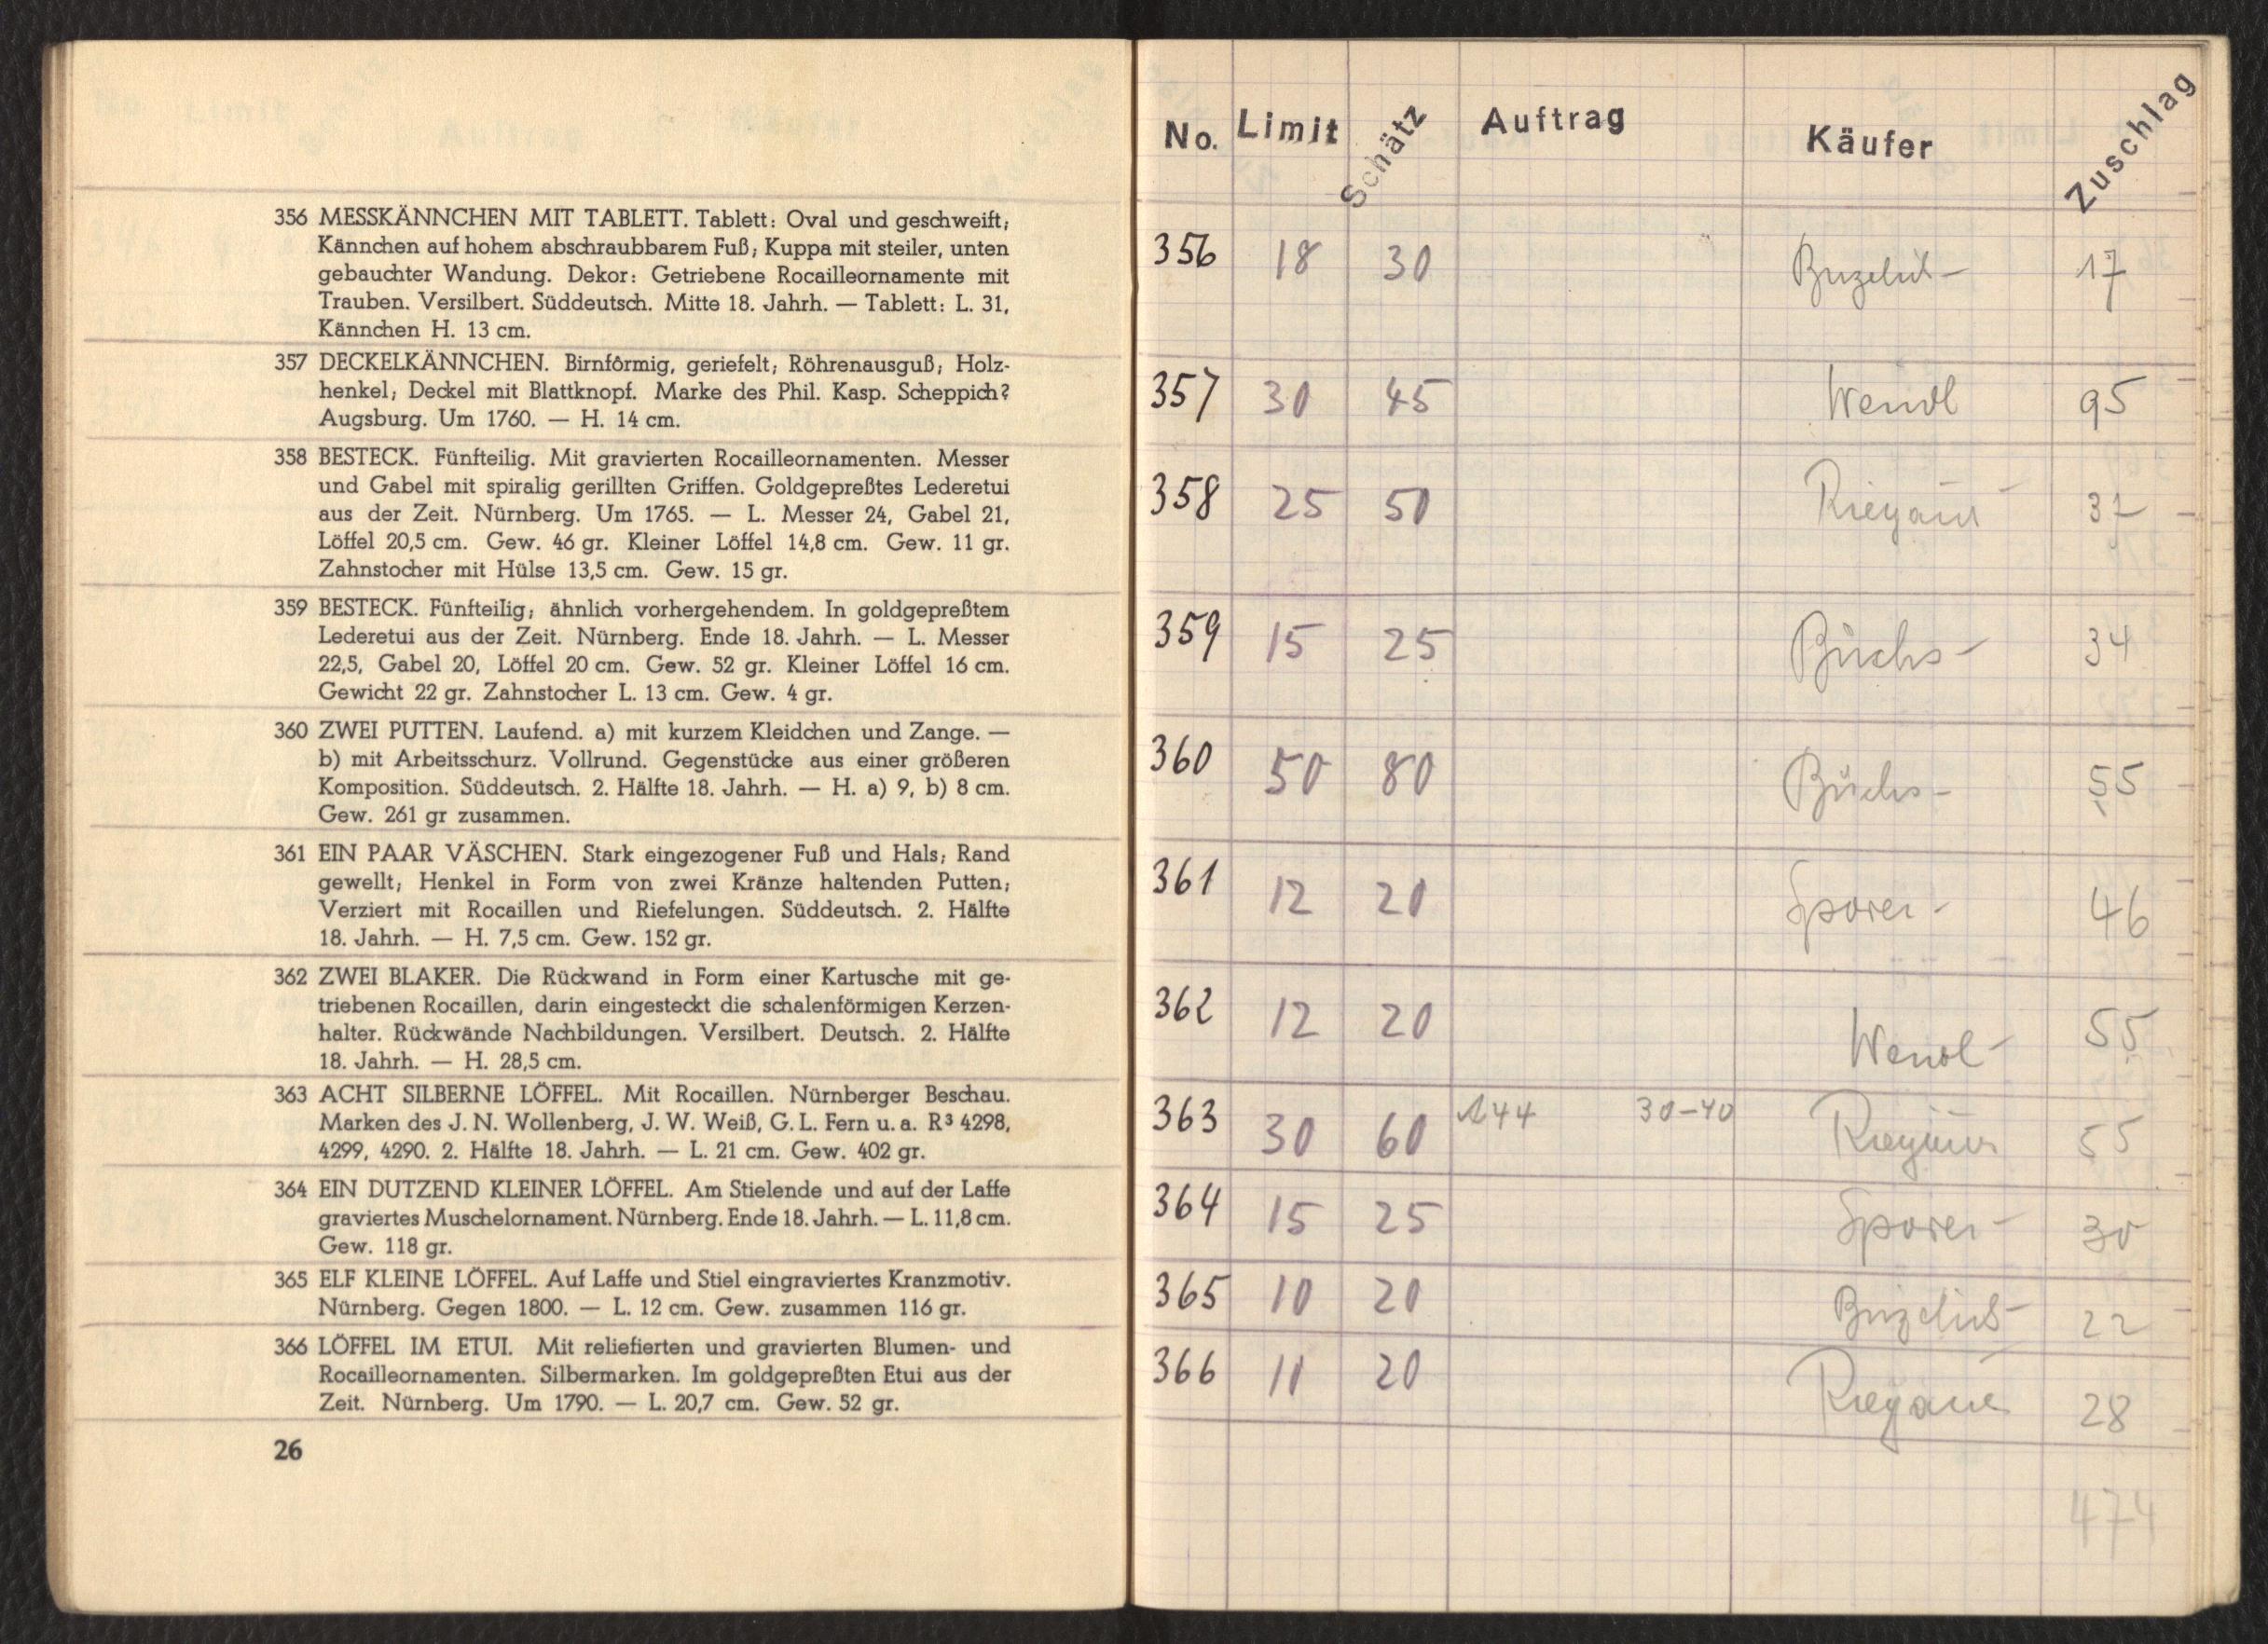 356 MESSKÄNNCHEN MIT TABLETT. Tablett: Oval und geschweift;
Kännchen auf hohem abschraubbarem Fuß; Kuppa mit steiler, unten
gebauchter Wandung. Dekor: Getriebene Rocailleornamente mit
Trauben. Versilbert. Süddeutsch. Mitte 18. Jahrh. — Tablett: L. 31,
Kännchen H. 13 cm.
357 DECKELKÄNNCHEN. Birnförmig, geriefelt; Röhrenausguß; Holz-
henkel; Deckel mit Blattknopf. Marke des Phil. Kasp. Scheppich?
Augsburg. Um 1760. — H. 14 cm.
358 BESTECK. Fünfteilig. Mit gravierten Rocailleornamenten. Messer
und Gabel mit spiralig gerillten Griffen. Goldgepreßtes Lederetui
aus der Zeit. Nürnberg. Um 1765. — L. Messer 24, Gabel 21,
Löffel 20,5 cm. Gew. 46 gr. Kleiner Löffel 14,8 cm. Gew. 11 gr.
Zahnstocher mit Hülse 13,5 cm. Gew. 15 gr.
359 BESTECK. Fünfteilig; ähnlich vorhergehendem. In goldgepreßtem
Lederetui aus der Zeit. Nürnberg. Ende 18. Jahrh. — L. Messer
22,5, Gabel 20, Löffel 20 cm. Gew. 52 gr. Kleiner Löffel 16 cm.
Gewicht 22 gr. Zahnstocher L. 13 cm. Gew. 4 gr.
360 ZWEI PUTTEN. Laufend. a) mit kurzem Kleidchen und Zange. —
b) mit Arbeitsschurz. Vollrund. Gegenstücke aus einer größeren
Komposition. Süddeutsch. 2. Hälfte 18. Jahrh. — H. a) 9, b) 8 cm.
Gew. 261 gr zusammen.
361 EIN PAAR VÄSCHEN. Stark eingezogener Fuß und Hals; Rand
gewellt; Henkel in Form von zwei Kränze haltenden Putten;
Verziert mit Rocaillen und Riefelungen. Süddeutsch. 2. Hälfte
18. Jahrh. — H. 7,5 cm. Gew. 152 gr.
362 ZWEI BLAKER. Die Rückwand in Form einer Kartusche mit ge-
triebenen Rocaillen, darin eingesteckt die schalenförmigen Kerzen-
halter. Rückwände Nachbildungen. Versilbert. Deutsch. 2. Hälfte
18. Jahrh. — H. 28,5 cm.
363 ACHT SILBERNE LÖFFEL. Mit Rocaillen. Nürnberger Beschau.
Marken des J. N. Wollenberg, J. W. Weiß, G. L. Fern u. a. R³ 4298,
4299, 4290. 2. Hälfte 18. Jahrh. — L. 21 cm. Gew. 402 gr.
364 EIN DUTZEND KLEINER LÖFFEL. Am Stielende und auf der Laffe
graviertes Muschelornament. Nürnberg. Ende 18. Jahrh. — L. 11,8 cm.
Gew. 118 gr.
365 ELF KLEINE LÖFFEL. Auf Laffe und Stiel eingraviertes Kranzmotiv.
Nürnberg. Gegen 1800. — L. 12 cm. Gew. zusammen 116 gr.
366 LÖFFEL IM ETUI. Mit reliefierten und gravierten Blumen- und
Rocailleornamenten. Silbermarken. Im goldgepreßten Etui aus der
Zeit. Nürnberg. Um 1790. — L. 20,7 cm. Gew. 52 gr.
26
No. Limit Schätz Auftrag Käufer Zuschlag
356 18 30 17
357 30 45 Wendl 95
358 25 50
359 15 25 Büchs- 34
360 50 80 Büchs- 55
361 12 20 Sporer- 46
362 12 20 Wendl- 55
363 30 60 30-40 55
364 15 25 Sporer- 30
365 10 20 22
366 11 20 28
474